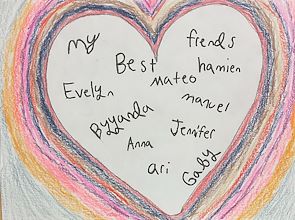 my
Best
friends
hamien
mateo
Evelyn
manuel
Byyanda
Jennifer
Anna
ari
Gaby